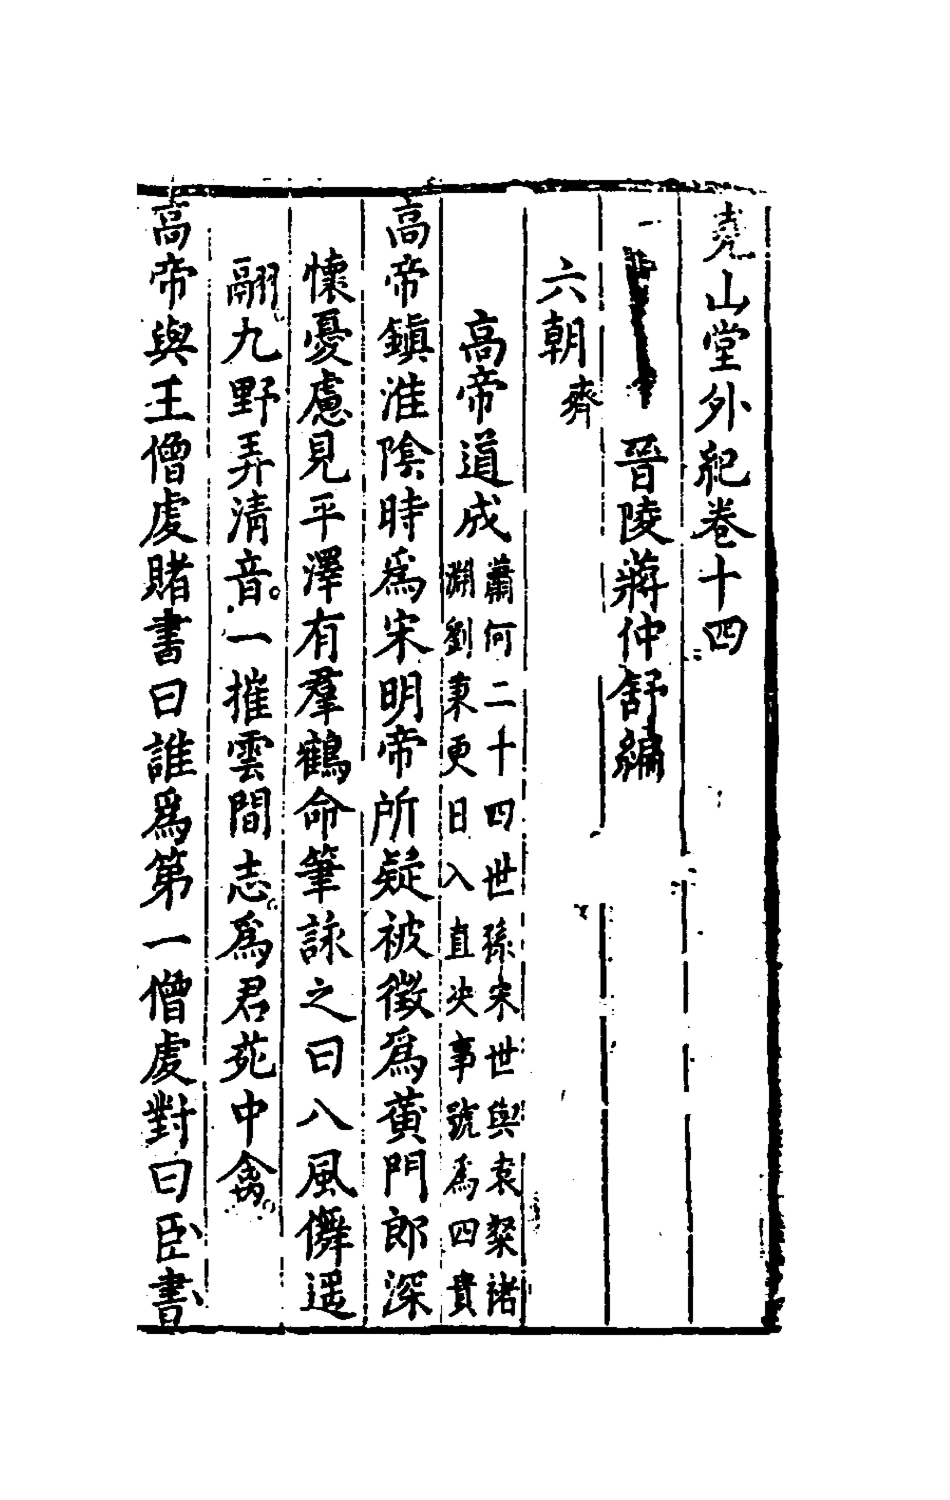 堯山堂外紀卷十四
晉陵蔣仲舒編
六朝 齊
高帝道成 蕭何二十四世孫宋世與袁粲禇
淵劉秉更日入直決事號爲四貴
高帝鎭淮陰時爲宋明帝所疑被徵爲黃門郎深
懷憂慮見平澤有羣鶴命筆詠之曰八風儛遥
翮九野弄清音一摧雲間志爲君苑中禽
高帝與王僧虔賭書曰誰爲第一僧虔對曰臣書